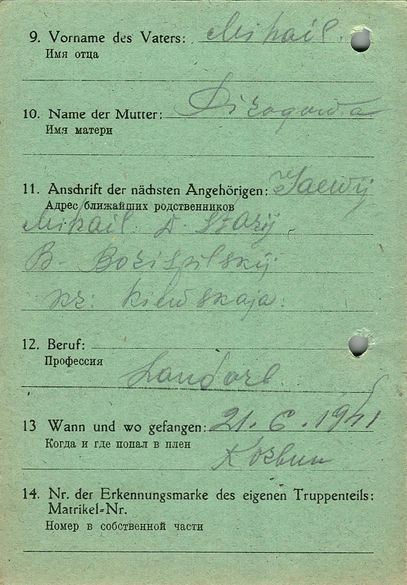 9. Vorname des Vaters: Mihail.
Имя отца
10. Name der Mutter: Dirogowa
Имя матери
11. Anschrift der nächsten Angehörigen:
Адрес ближайших родственников
Mihail D. Starij.
B- Borispilskij
kr: kiewskaja.
12. Beruf:
Профессия
Landarb.
13 Wann und wo gefangen: 21. 6. 1941
Когда и где попал в плен
14. Nr. der Erkennungsmarke des eigenen Truppenteils:
Matrikel-Nr.
Номер в собственной части